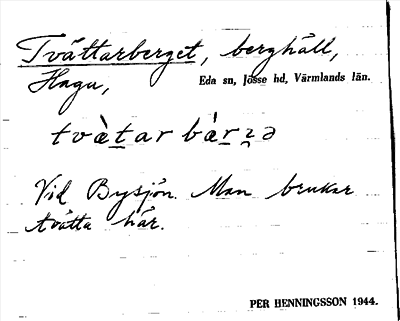 Tvättarberget, berghäll,
Haga, Eda sn, Jösse hd, Värmlands län.
tvàt̲ar bàr̲ʒ̲ə
Vid Bysjön. Man brukar
tvätta här.
PER HENNINGSSON 1944.